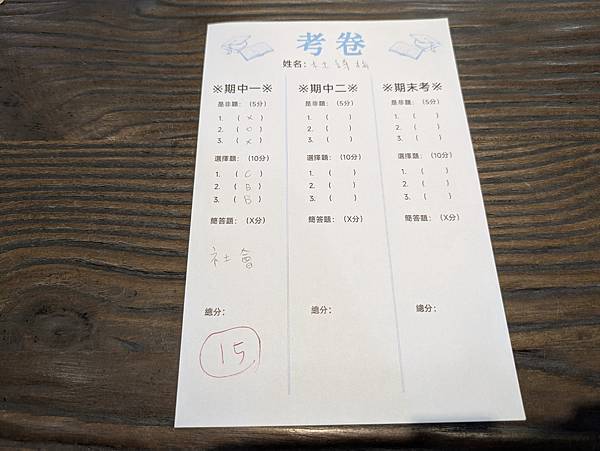 考卷
姓名:
※期中一※
是非題: (5分)
1. ( X )
2. ( O )
3. ( X )
選擇題: (10分)
1. ( C )
2. ( B )
3. ( B )
簡答題: (X分)
社會
總分:
15
※期中二※
是非題: (5分)
1. ( )
2. ( )
3. ( )
選擇題: (10分)
1. ( )
2. ( )
3. ( )
簡答題: (X分)
總分:
※期末考※
是非題: (5分)
1. ( )
2. ( )
3. ( )
選擇題: (10分)
1. ( )
2. ( )
3. ( )
簡答題: (X分)
總分: